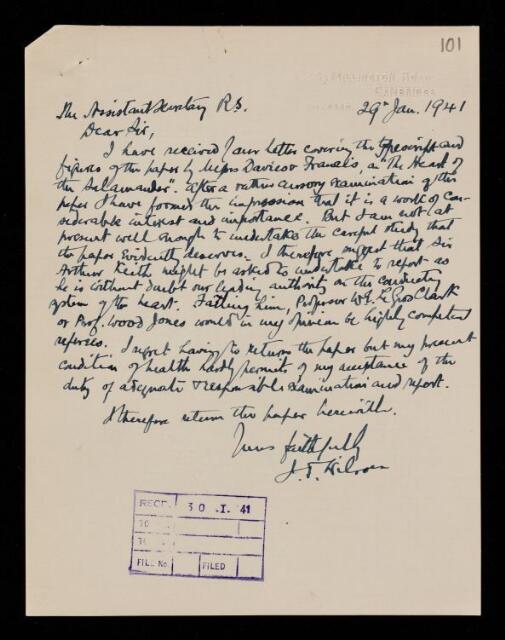 101
29th Jan. 1941
The Assistant Secretary R.S.
Dear Sir,
I have received your letter covering the typescript and
figures of the paper by Messrs Davies & Francis, on "The Heart of
the Salamander". After a rather cursory examination of the
paper I have formed the impression that it is a work of con-
siderable interest and importance. But I am not at
present well enough to undertake the careful study that
the paper evidently deserves. I therefore suggest that Sir
Arthur Keith might be asked to undertake to report as
he is without doubt our leading authority on the conducting
system of the heart. Failing him, Professor W.E. Le Gros Clark
or Prof. Wood Jones would in my opinion be highly competent
referees. I regret having to return the paper but my present
condition of health hardly permits of my acceptance of the
duty of adequate & responsible examination and report.
I therefore return the paper herewith.
Yours faithfully
J. T. Wilson
RECD. 30 . I. 41
FILE No. FILED